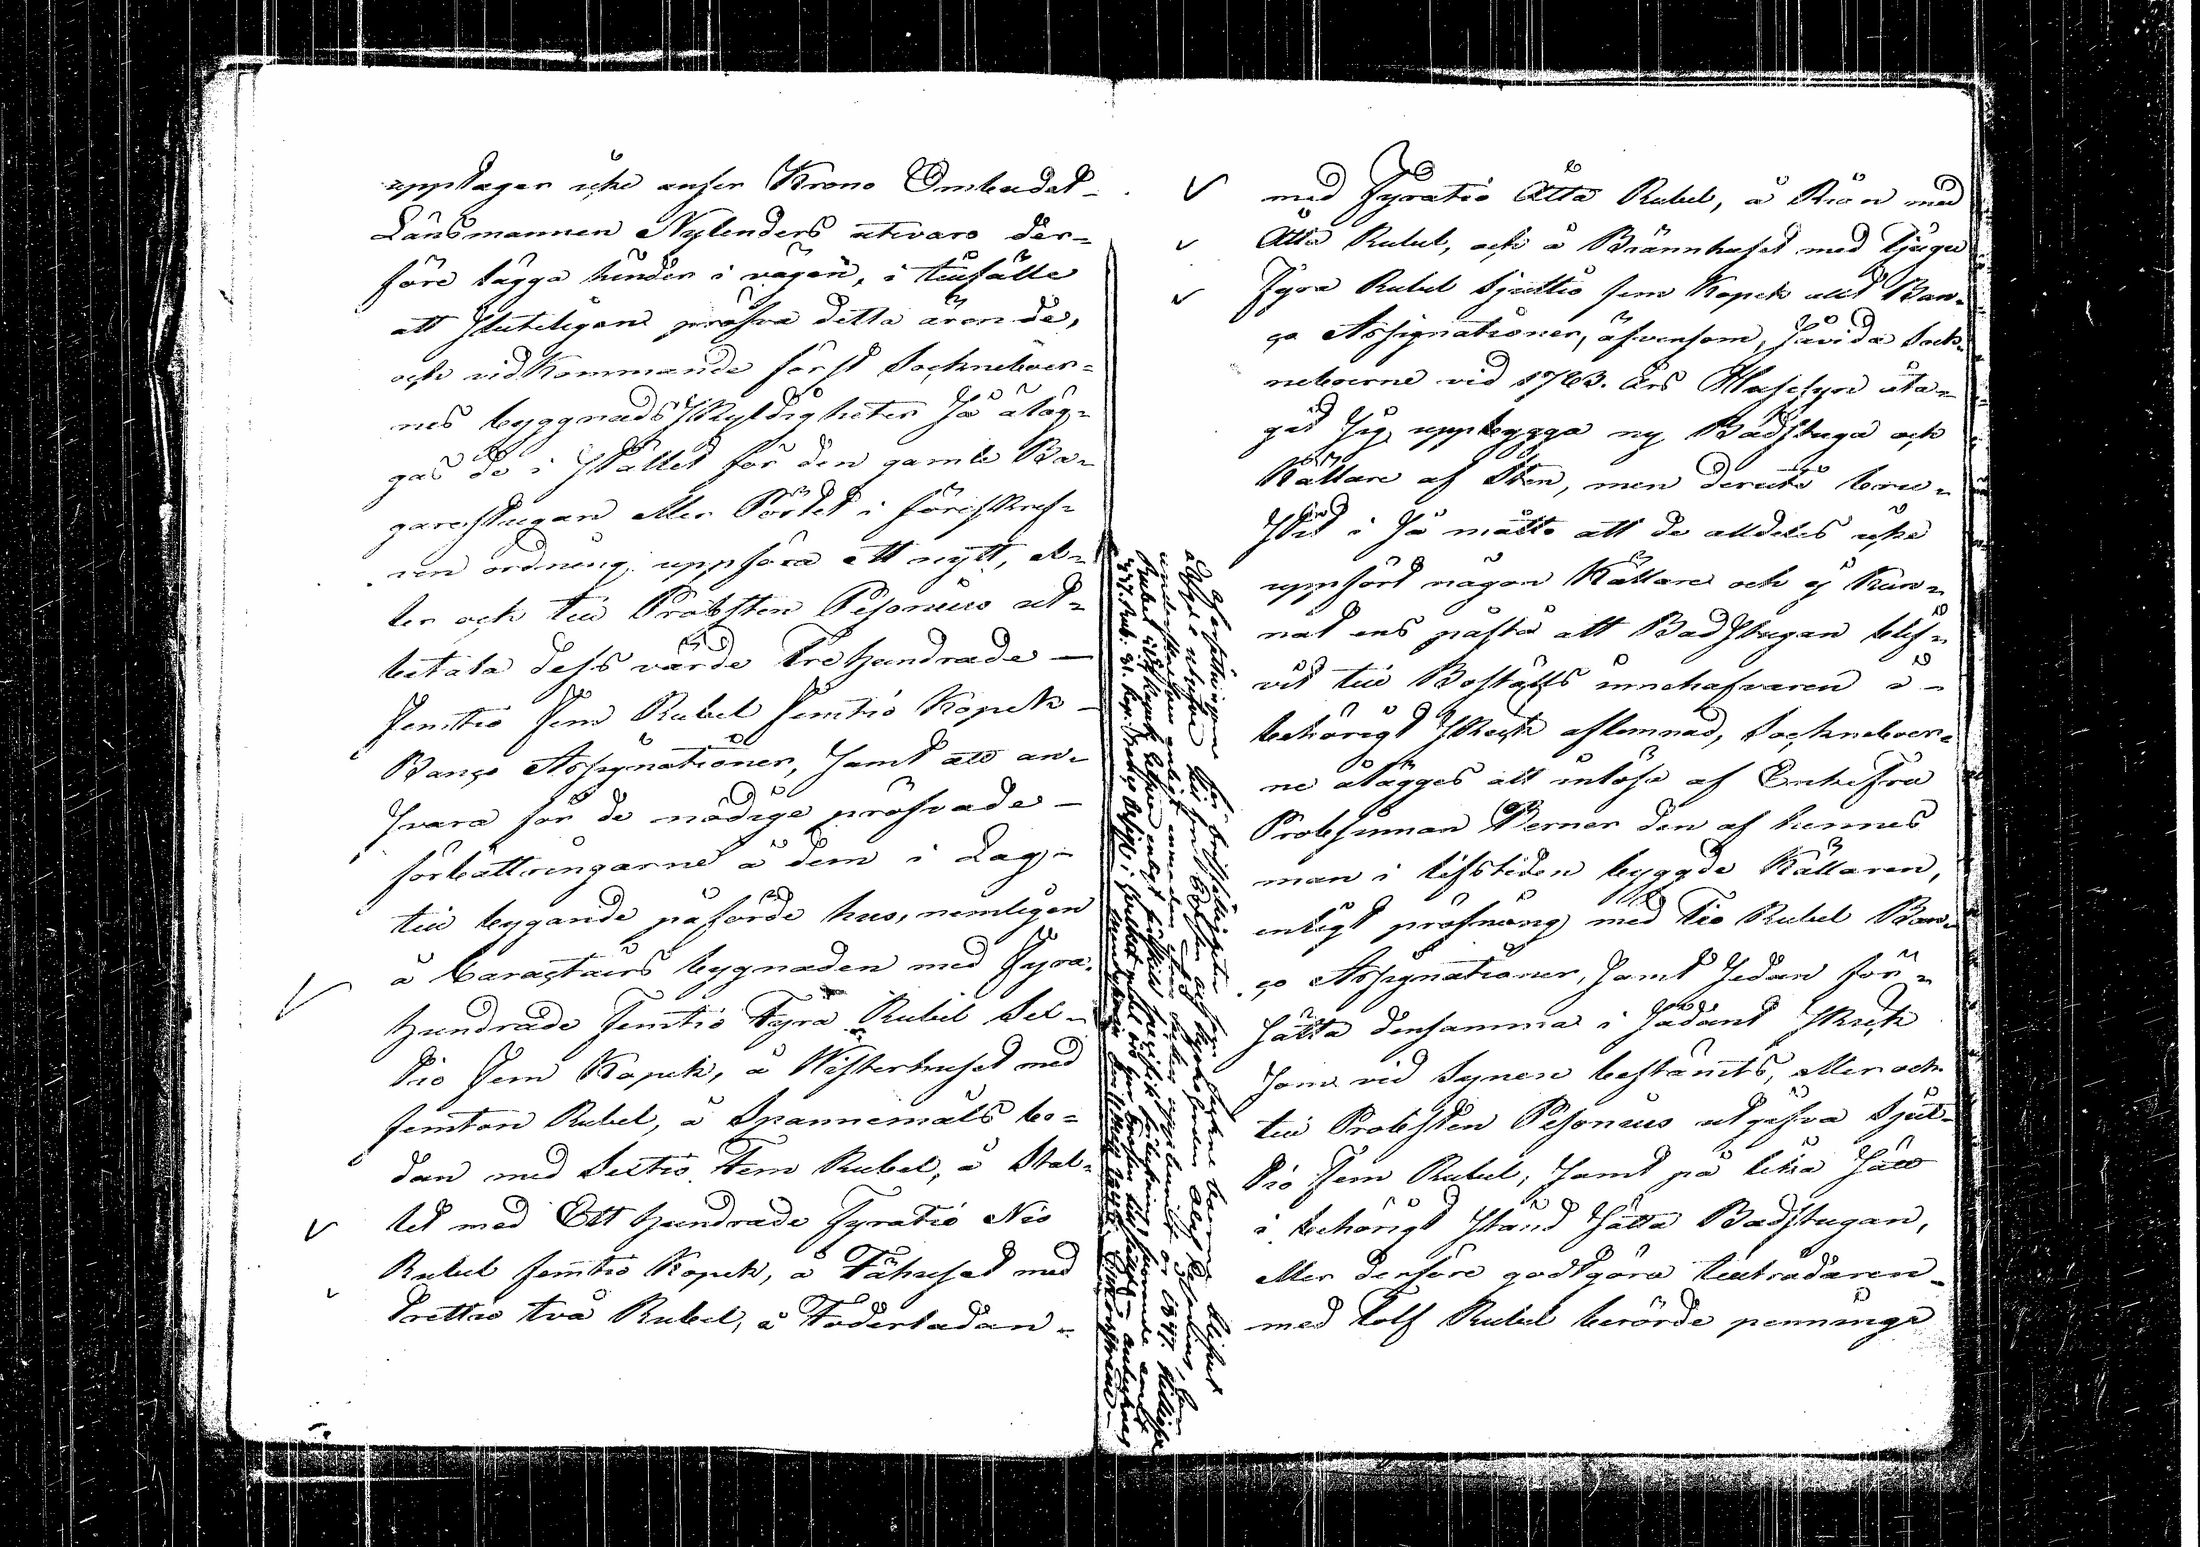 upptager icke anser Krono Ombudet
Länsmannen Nylenders utevaro der-
före lägga hinder i vägen, i tillfälle
att sluteligen pröfva detta ärende,
och vidkommande först Sockneboer-
nes byggnads skyldigheter så åläg-
gas de i stället för den gamle Ba-
garestugan eller Pörtet i föreskref-
ven ordning uppföra ett nytt, el-
ler ock till Probsten Pesonius ut-
betala dess värde Trehundrade
femtio fem Rubel femtio Kopek
Banco Assignationer, samt att an-
svara för de nödige pröfvade
förbättringarne å dem i Lag
till bygande påförde hus, nemligen
å Caractairs bygnaden med Fyra-
hundrade femtio Fyra Rubel Sex-
tio fem Kopek, å Wisterhuset med
femton Rubel, å Spannemåls bo-
dan med Sextio Fem Rubel, å Stal-
let med Ett hundrade Fyratio Nio
Rubel femtio Kopek, å Fähuset med
Trettio två Rubel, å Foderladan
med Fyratio Åtta Rubel, å Rian med
Åtta Rubel, och å Brännhuset med Tjugu
Fyra Rubel Sjuttio fem Kopek allt Ban-
co Assignationer, äfvensom, såvida Sock-
neboerne vid 1763. Års Husesyn åta-
git sig uppbygga ny Badstuga och
Källare af Sten, men deruti brus-
tit i så måtto att de alldeles icke
uppfört någon Källare och ej kun-
nat ens påstå att Badstugan blif-
vit till Boställs innehafvaren i
behörigt skick aflemnad, Sockneboer-
ne ålägges att inlösa af Enkefru
Probstinnan Perner den af hennes
man i lifstiden byggde Källaren,
enligt pröfning med Tio Rubel Ban-
co Assignationer, samt sedan för-
sätta densamma i sådant skick
som vid Synen bestämts, eller ock
till Probsten Pesonius utgifva Sjut-
tio fem Rubel, samt på lika sätt
i behörigt stånd sätta Badstugan,
eller derföre godtgöra tillträdaren
med Tolf Rubel berörde penninge